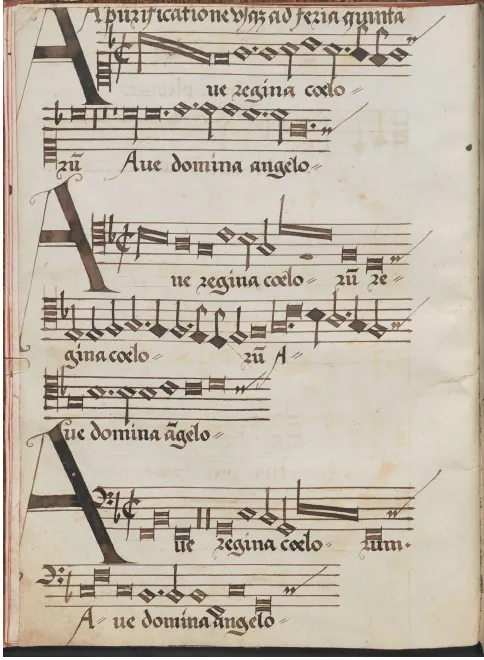 A purificatione vsqz ad feria quinta
Aue regina cœlo
rū Aue domina angelo
Aue regina cœlo rū re
gina cœlo rū A
Aue domina āgelo
Aue regina cœlo rum.
A ue domina angelo